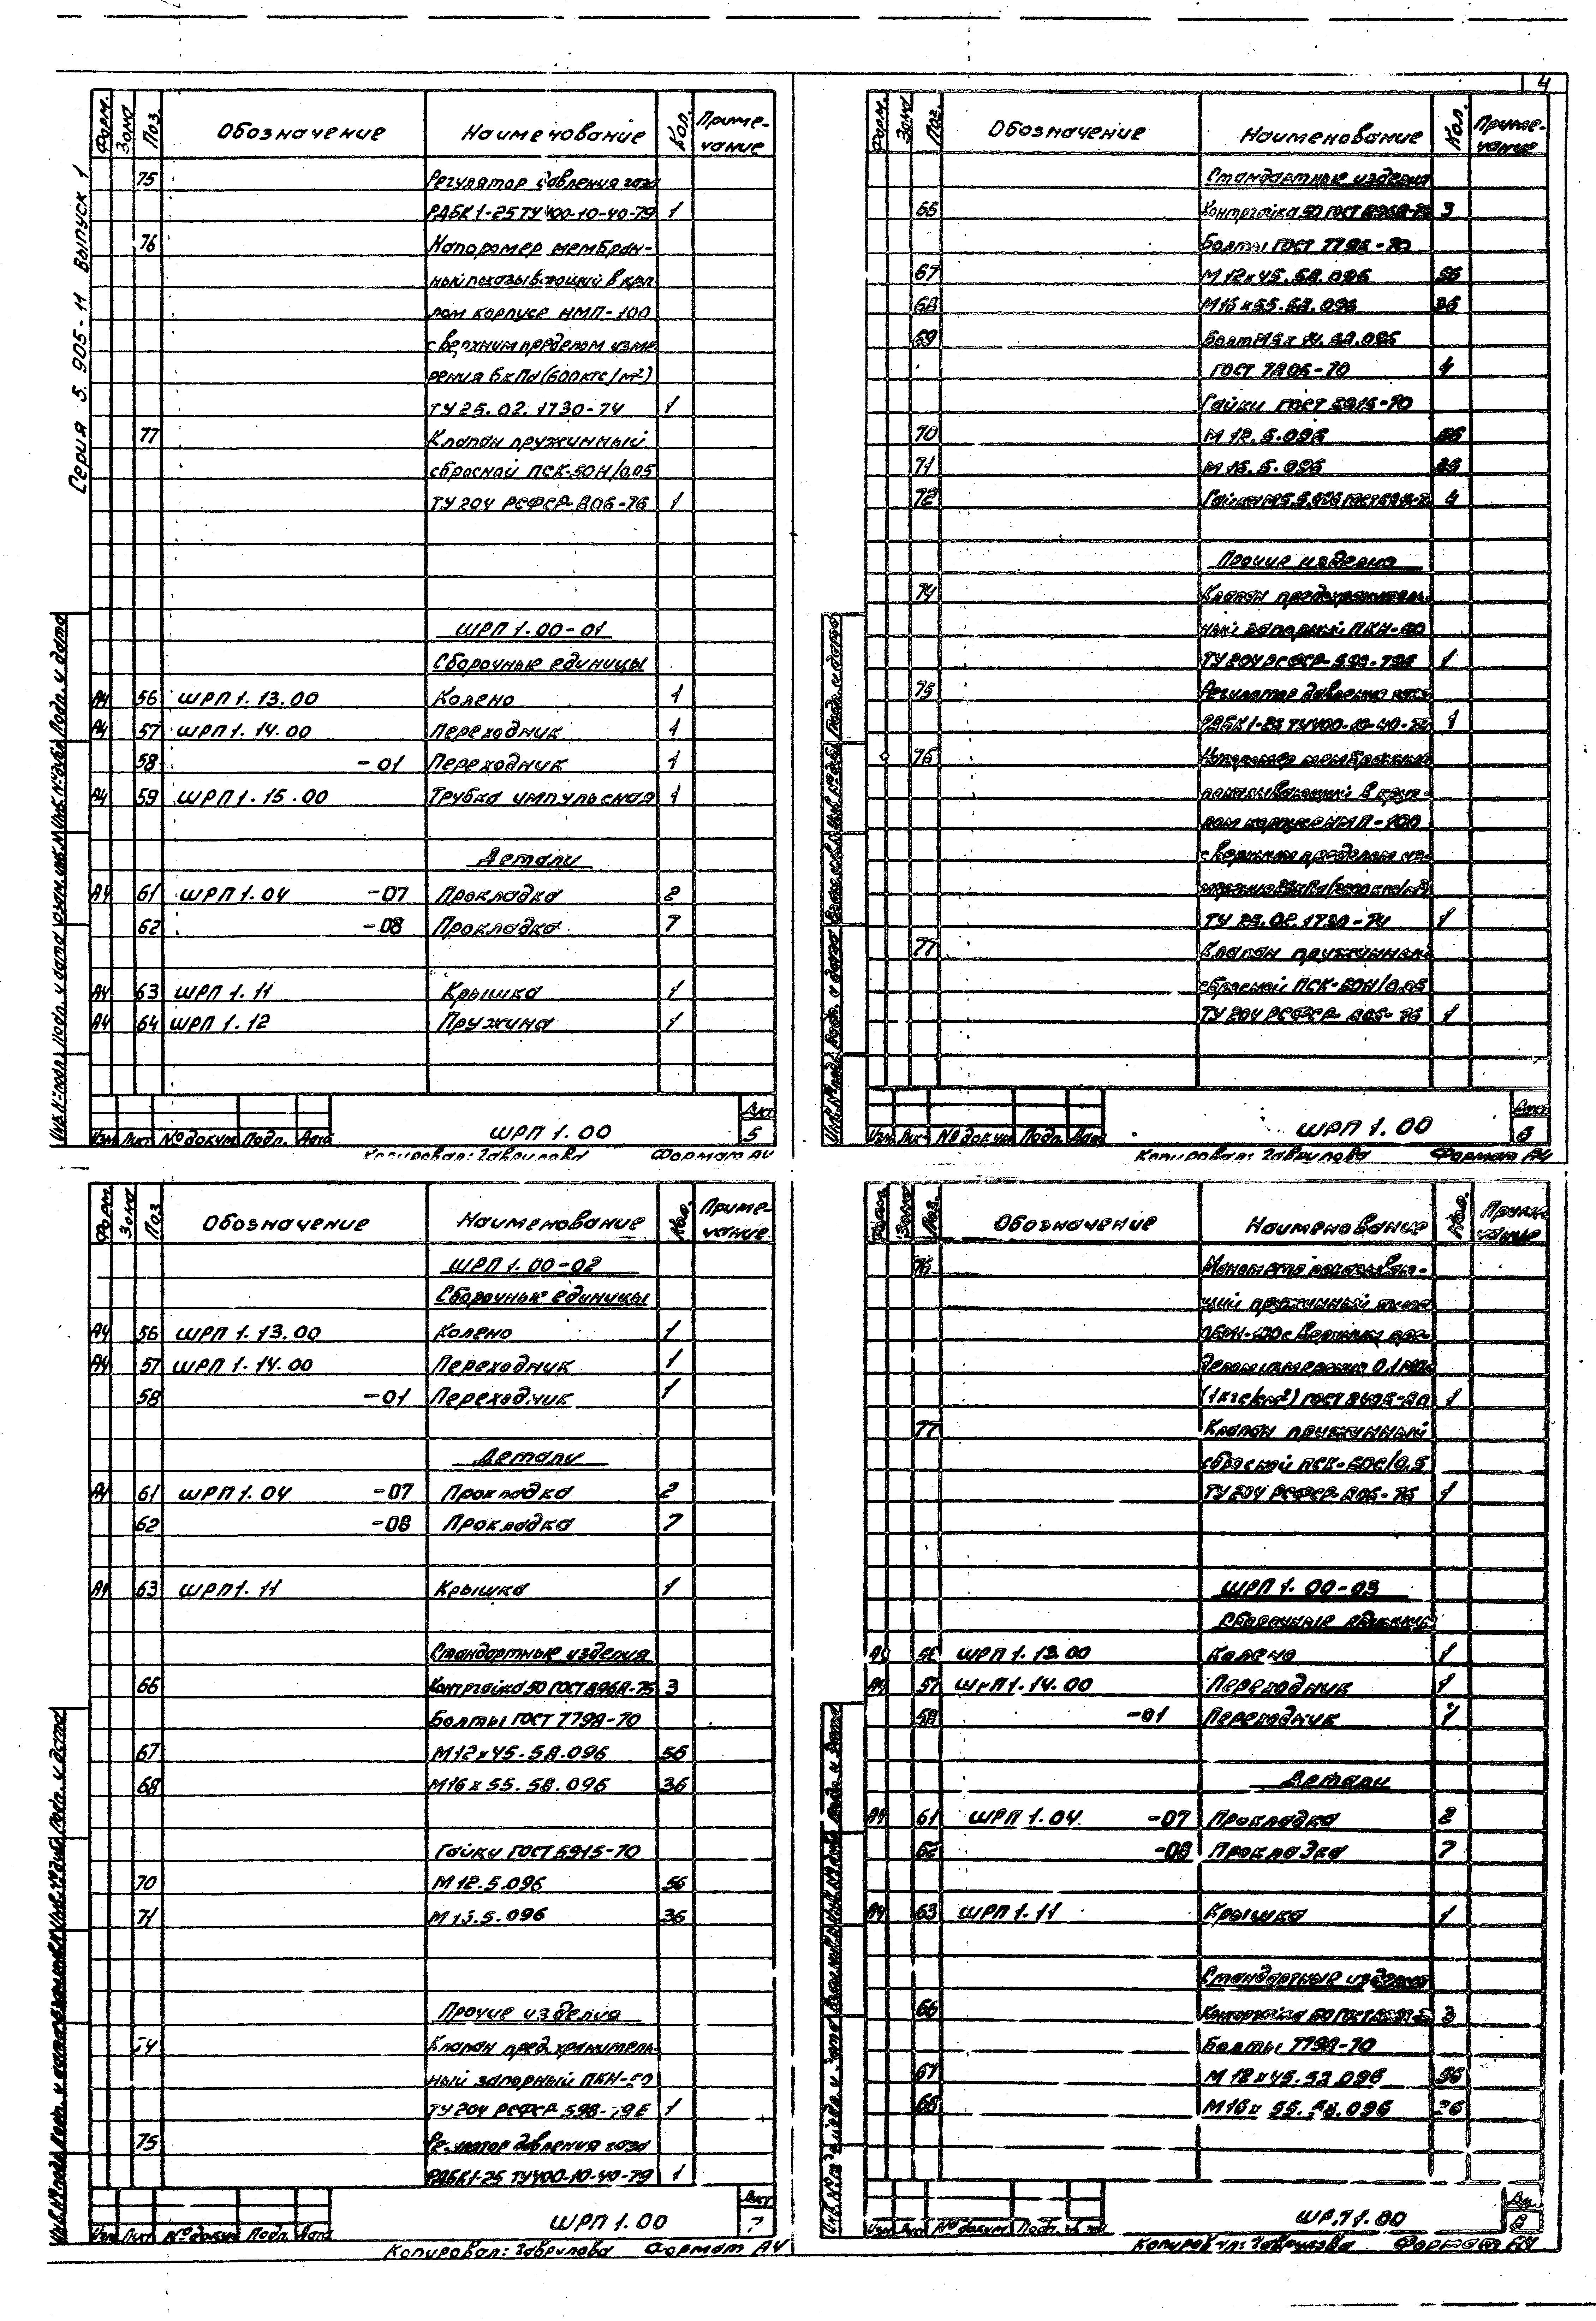 4
Серия 5.905-11 Выпуск 1
Форм. Зона Поз. Обозначение Наименование Кол. Приме-
чание
75 Регулятор давления газа
РДБК1-25 ТУ400-10-40-79 1
76 Напоромер мембран-
ный показывающий в круг-
лом корпусе НМП-100
с верхним пределом изме
рения 6кПа(600кгс/м²)
ТУ25.02.1730-74 1
77 Клапан пружинный
сбросной ПСК-50Н/0,05
ТУ204 РСФСР 806-76 1
ШРП 1.00-01
Сборочные единицы
А4 56 ШРП 1.13.00 Колено 1
А4 57 ШРП 1.14.00 Переходник 1
58 -01 Переходник 1
А4 59 ШРП 1.15.00 Трубка импульсная 1
Детали
А4 61 ШРП 1.04 -07 Прокладка 2
62 -08 Прокладка 7
А4 63 ШРП 1.11 Крышка 1
А4 64 ШРП 1.12 Пружина 1
Изм Лист № докум Подп. Дата ШРП 1.00 Лист 5
Копировал: Гаврилова Формат А4
Форм. Зона Поз. Обозначение Наименование Кол. Приме-
чание
Стандартные изделия
66 Контргайка 50 ГОСТ 8968-75 3
Болты ГОСТ 7798-70
67 М12х45.58.096 56
68 М16х55.58.096 36
69
ГОСТ 7805-70 4
Гайки ГОСТ 5915-70
70 М12.5.096 56
71 М16.5.096 36
72 4
Прочие изделия
74 Клапан предохранитель-
ный запорный ПКН-50
1
75 Регулятор давления газа
1
76 Напоромер мембранный
показывающий в круг-
лом корпусе НМП-100
с верхним пределом из-
ТУ 25.02.1730-74 1
77 Клапан пружинный
сбросной ПСК-50Н/0,05
ТУ204 РСФСР 806-76 1
Изм Лист № докум Подп. Дата ШРП 1.00 Лист 6
Копировал: Гаврилова Формат А4
Форм. Зона Поз Обозначение Наименование Кол. Приме-
чание
ШРП 1.00-02
Сборочные единицы
А4 56 ШРП 1.13.00 Колено 1
А4 57 ШРП 1.14.00 Переходник 1
58 -01 Переходник 1
Детали
А4 61 ШРП 1.04 -07 Прокладка 2
62 -08 Прокладка 7
А4 63 ШРП 1.11 Крышка 1
Стандартные изделия
66 Контргайка 50 ГОСТ 8968-75 3
Болты ГОСТ 7798-70
67 М12х45.58.096 56
68 М16х55.58.096 36
Гайки ГОСТ 5915-70
70 М12.5.096 56
71 М16.5.096 36
Прочие изделия
74 Клапан предохранитель
ный запорный ПКН-50
ТУ204 РСФСР 598-79Е 1
75 Регулятор давления газа
РДБК1-25 ТУ400-10-40-79 1
Изм Лист № докум Подп. Дата ШРП 1.00 Лист 7
Копировал: Гаврилова Формат А4
Форм. Зона Поз. Обозначение Наименование Кол. Приме-
чание
76 Манометр показываю-
щий пружинный типа
ОБМ1-100 с верхним пре-
делом измерения 0,1МПа
(1кгс/см²) ГОСТ 8405-80 1
77 Клапан пружинный
сбросной ПСК-50С/0,5
ТУ204 РСФСР 806-76 1
ШРП 1.00-03
Сборочные единицы
А4 56 ШРП 1.13.00 Колено 1
А4 57 ШРП 1.14.00 Переходник 1
58 -01 Переходник 1
Детали
А4 61 ШРП 1.04 -07 Прокладка 2
62 -08 Прокладка 7
А4 63 ШРП 1.11 Крышка 1
Стандартные изделия
66 Контргайка 50 3
Болты 7798-70
67 М12х45.58.096 56
68 М16х55.58.096 36
Изм Лист № докум Подп. ШРП 1.00 8
Копировал: Гаврилова Формат А4